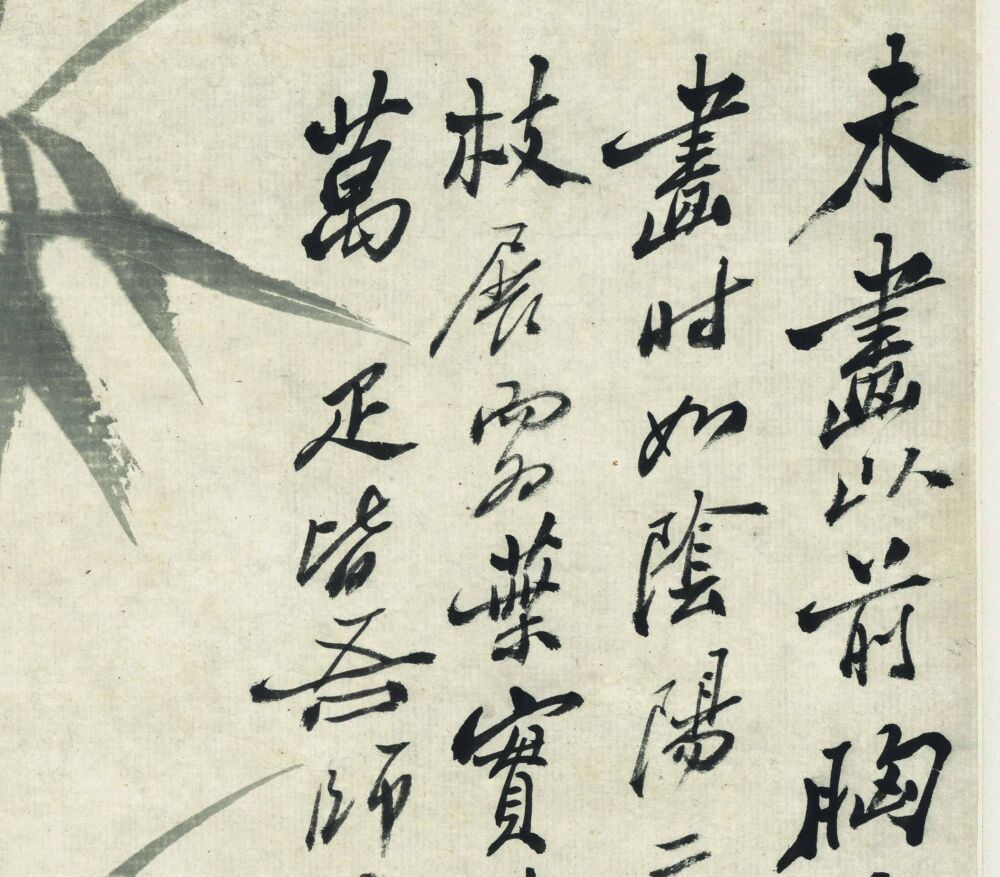 未畫以前胸
畫時如陰陽二
枝展雪葉實
萬疋皆吾師